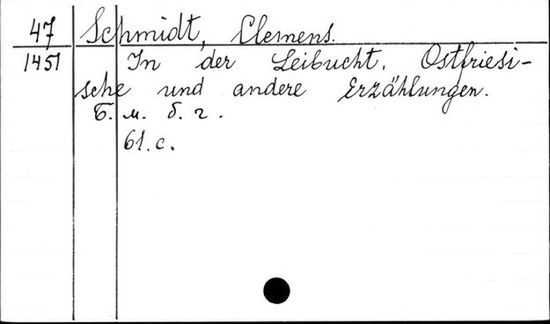 47 Schmidt, Clemens.
1451 In der Leibucht. Ostfriesi-
sche und andere Erzählungen.
Б. м. б. г.
61. с.